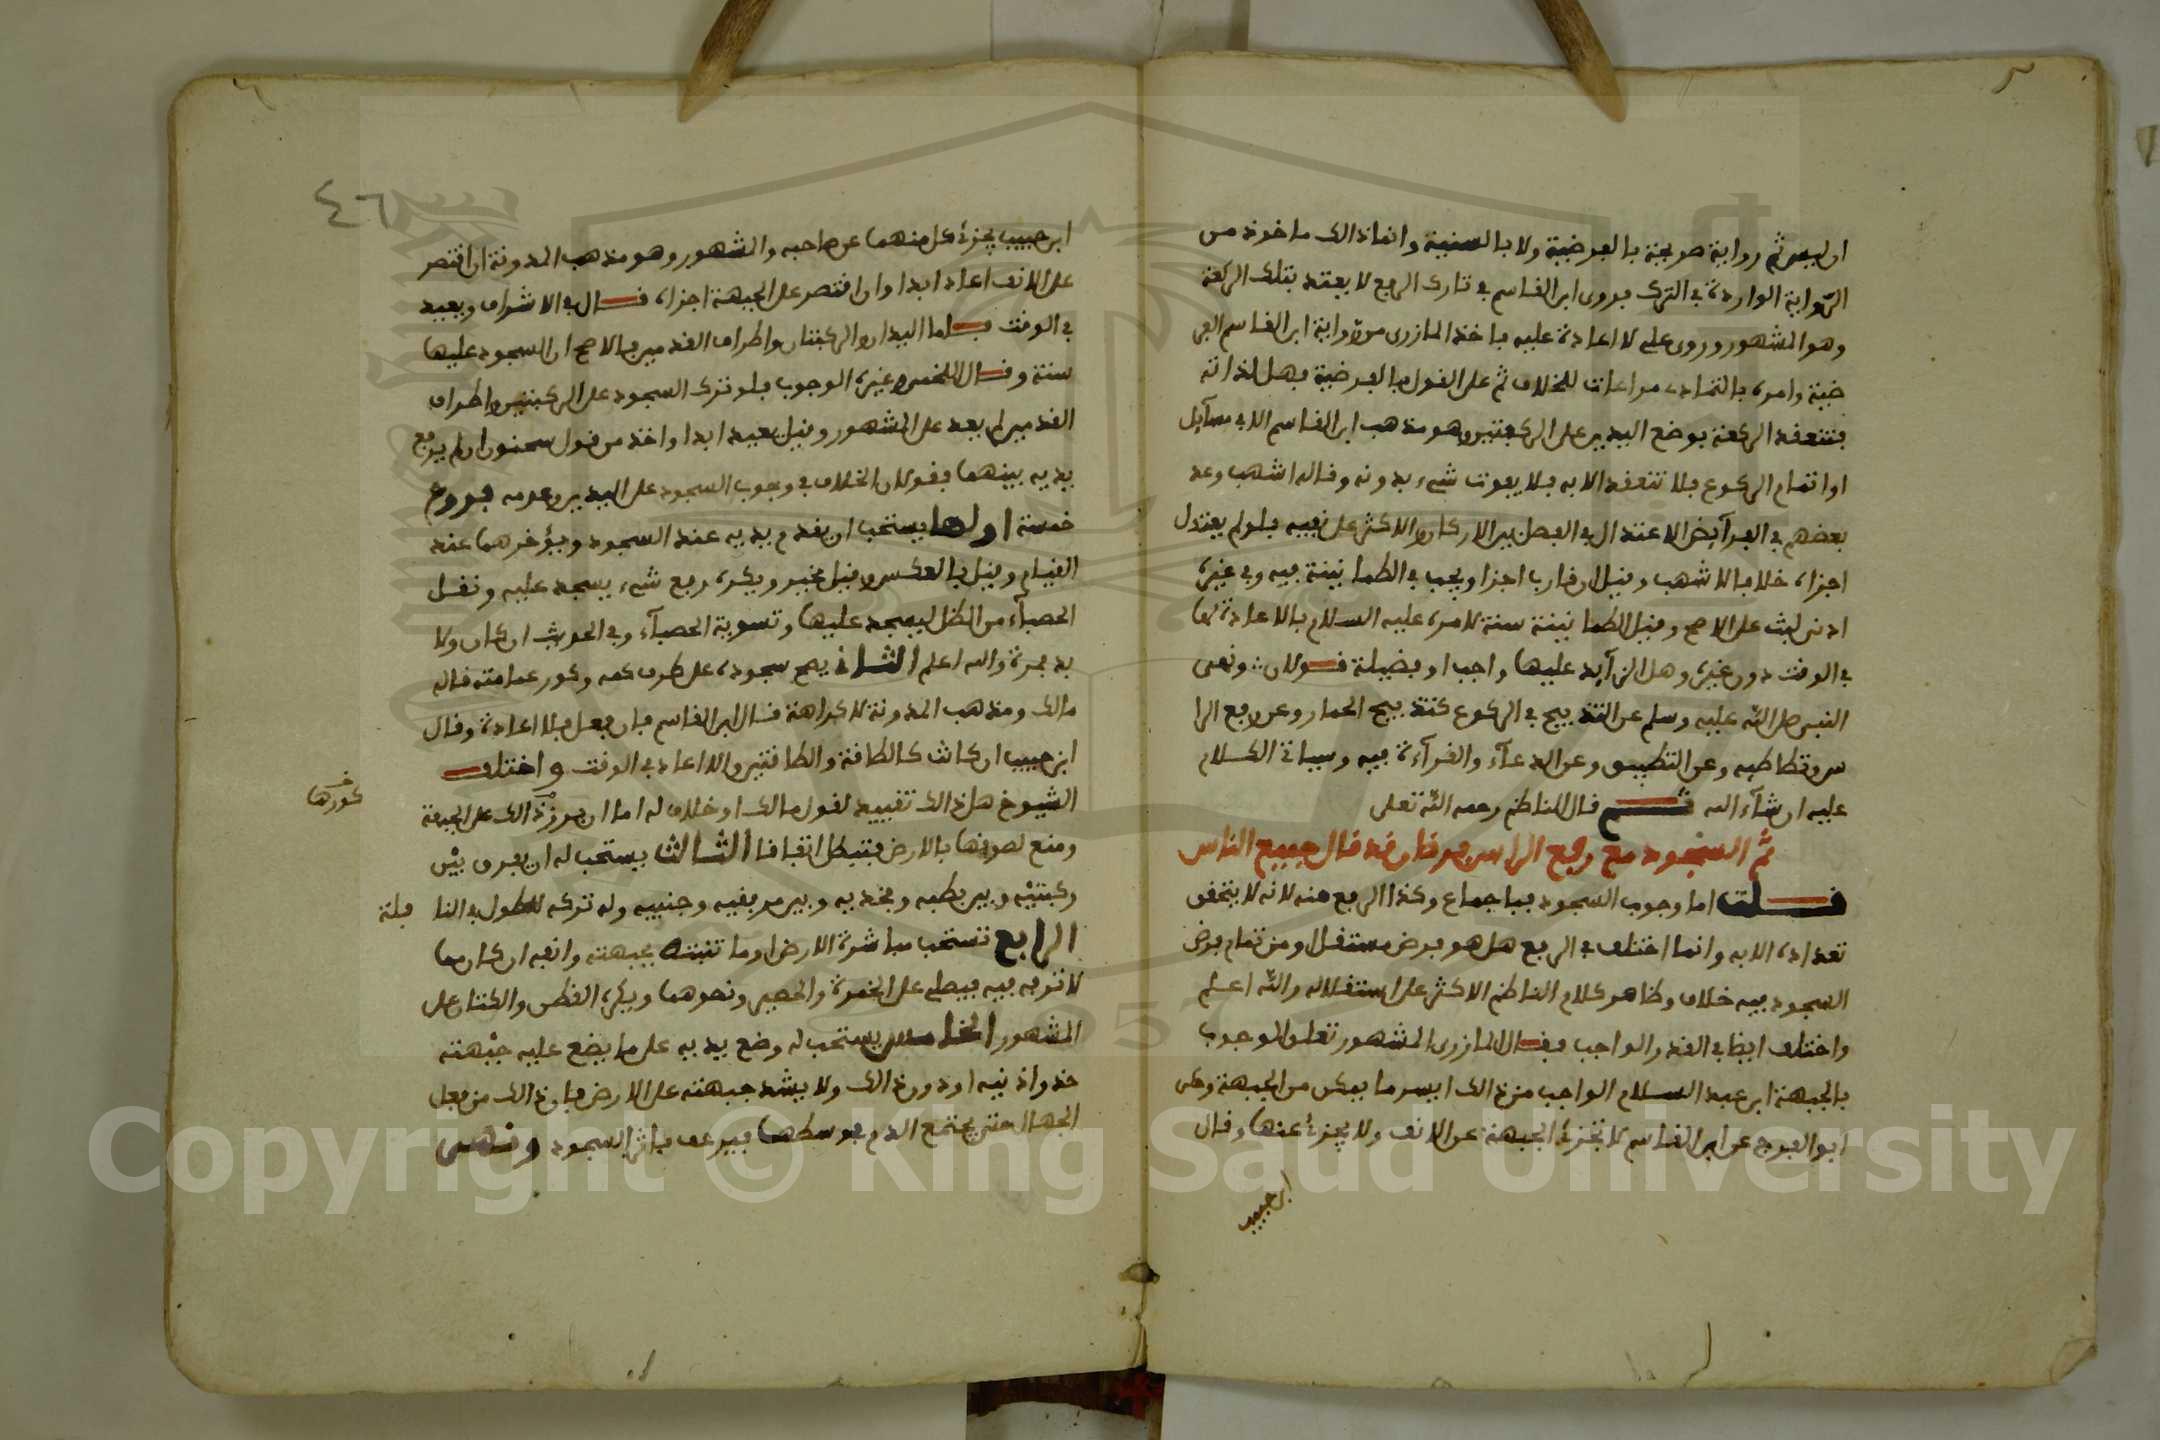 ان ليس ثم رواية صريحة بالفرضية ولا بالسنية وانما ذالك ماخوذ من
الرّواية الواردة في الترك فروى ابن القاسم في تارك الرفع لا يعتد بتلك الركعة
وهو المشهور وروى علي لا اعادة عليه فاخذ المازرى من رواية ابن القاسم الفر
ضية وامره بالتمادي مراعات للخلاف ثم على القول بالفرضية فهل لذاته
فتنعقد الركعة بوضع اليدين على الركبتين وهو مذهب ابن القاسم الا في مسآيل
او اتمام الركوع فلا تنعقد الا به فلا يفوت شيء بدونه وقاله اشهب وعد
بعضهم في الفرآيض الاعتدال في الفصل بين الاركان والاكثر على نفيه فلو لم يعتدل
اجزاه خلافا لاشهب وقيل ان قارب اجزا ويجب في الطمانينة فيه وفي غيره
ادنى لبث على الاصح وقيل الطمانينة سنة لامره عليه السلام بالاعادة لها
في الوقت دون غيره وهل الزآيد عليها واجب او فضيلة قولان ونهى
النبي صلى اللّه عليه وسلم عن التدبيح في الركوع كتدبيح الحمار وعن رفع الرا
س وتطاطيه وعن التطبيق وعن الدعآء والقرآءة فيه وسياتي الكلام
عليه ان شآء الله قال الناظم رحمه اللّه تعلى
ثم السجود مع رفع الراس فرضان قد قال جميع الناس
قلت اما وجوب السجود فباجماع وكذا الرفع منه لانه لا يتحقق
تعداده الا به وانما اختلف في الرفع هل هو فرض مستقل او من تمام فرض
السجود فيه خلاف وظاهر كلام الناظم الاكثر على استقلاله واللّه اعلم
واختلف ايضا في القدر الواجب فقال المازرى المشهور تعلق الوجوب
بالجبهة ابن عبد السلام الواجب من ذالك ايسر ما يمكن من الجبهة وحكى
ابو الفرج عن ابن القاسم لا تجزئ الجبهة عن الانف ولا يجزئ عنها وقال
ابن حبيب
٤٦
ابن حبيب يجزئ كل منهما عن صاحبه والمشهور وهو مذهب المدونة ان اقتصر
على الانف اعاد ابدا وان اقتصر على الجبهة اجزاه قال في الاشراف ويعيد
في الوقت فاما اليدان والركبتان واطراف القدمين فالاصح ان السجود عليها
سنة وقال اللخمي وغيره الوجوب فلو ترك السجود على الركبتين واطراف
القدمين لم يعد على المشهور وقيل يعيد ابدا واخذ من قول سحنون ان لم يرفع
يديه بينهما فقولان الخلاف في وجوب السجود على اليدين وعدمه فروع
خمسة اولها يستحب ان يقدم يديه عند السجود ويؤخرهما عند
القيام وقيل بالعكس وقيل مخير ويكره رفع شيء يسجد عليه ونقل
الحصبآء من الظل ليسجد عليها وتسوية الحصبآء وفي الحديث ان كان ولا
بد فمرة والله اعلم الثاني يصح سجوده على طرف كمه وكور عمامته قاله
مالك ومذهب المدونة لا كراهة قال ابن القاسم فان فعل فلا اعادة وقال
ابن حبيب ان كانت كالطاقة والطاقتين والا اعاد في الوقت واختلف
الشيوخ هل ذالك تقييد لقول مالك او خلاف له اما ان برز ذالك على الجبهة
كورها
ومنع لصوقها بالارض فتبطل اتفاقا الثالث يستحب له ان يفرق بين
ركبتيه وبين بطنه وفخذيه وبين مرفقيه وجنبيه وله تركه للطول في النا فلة
الرابع تستحب مباشرة الارض او ما تنبته بجبهته وانفه ان كان مما
لا ترفه فيه فيصلي على الخمرة والحصير ونحوهما ويكره القطن والكتان على
المشهور الخامس يستحب له وضع يديه على ما يضع عليه جبهته
حذو اذنيه او دون ذالك ولا يشد جبهته على الارض فان ذالك من فعل
الجهال حتى يجتمع الدم في وسطها فيرعف باثر السجود ونهى